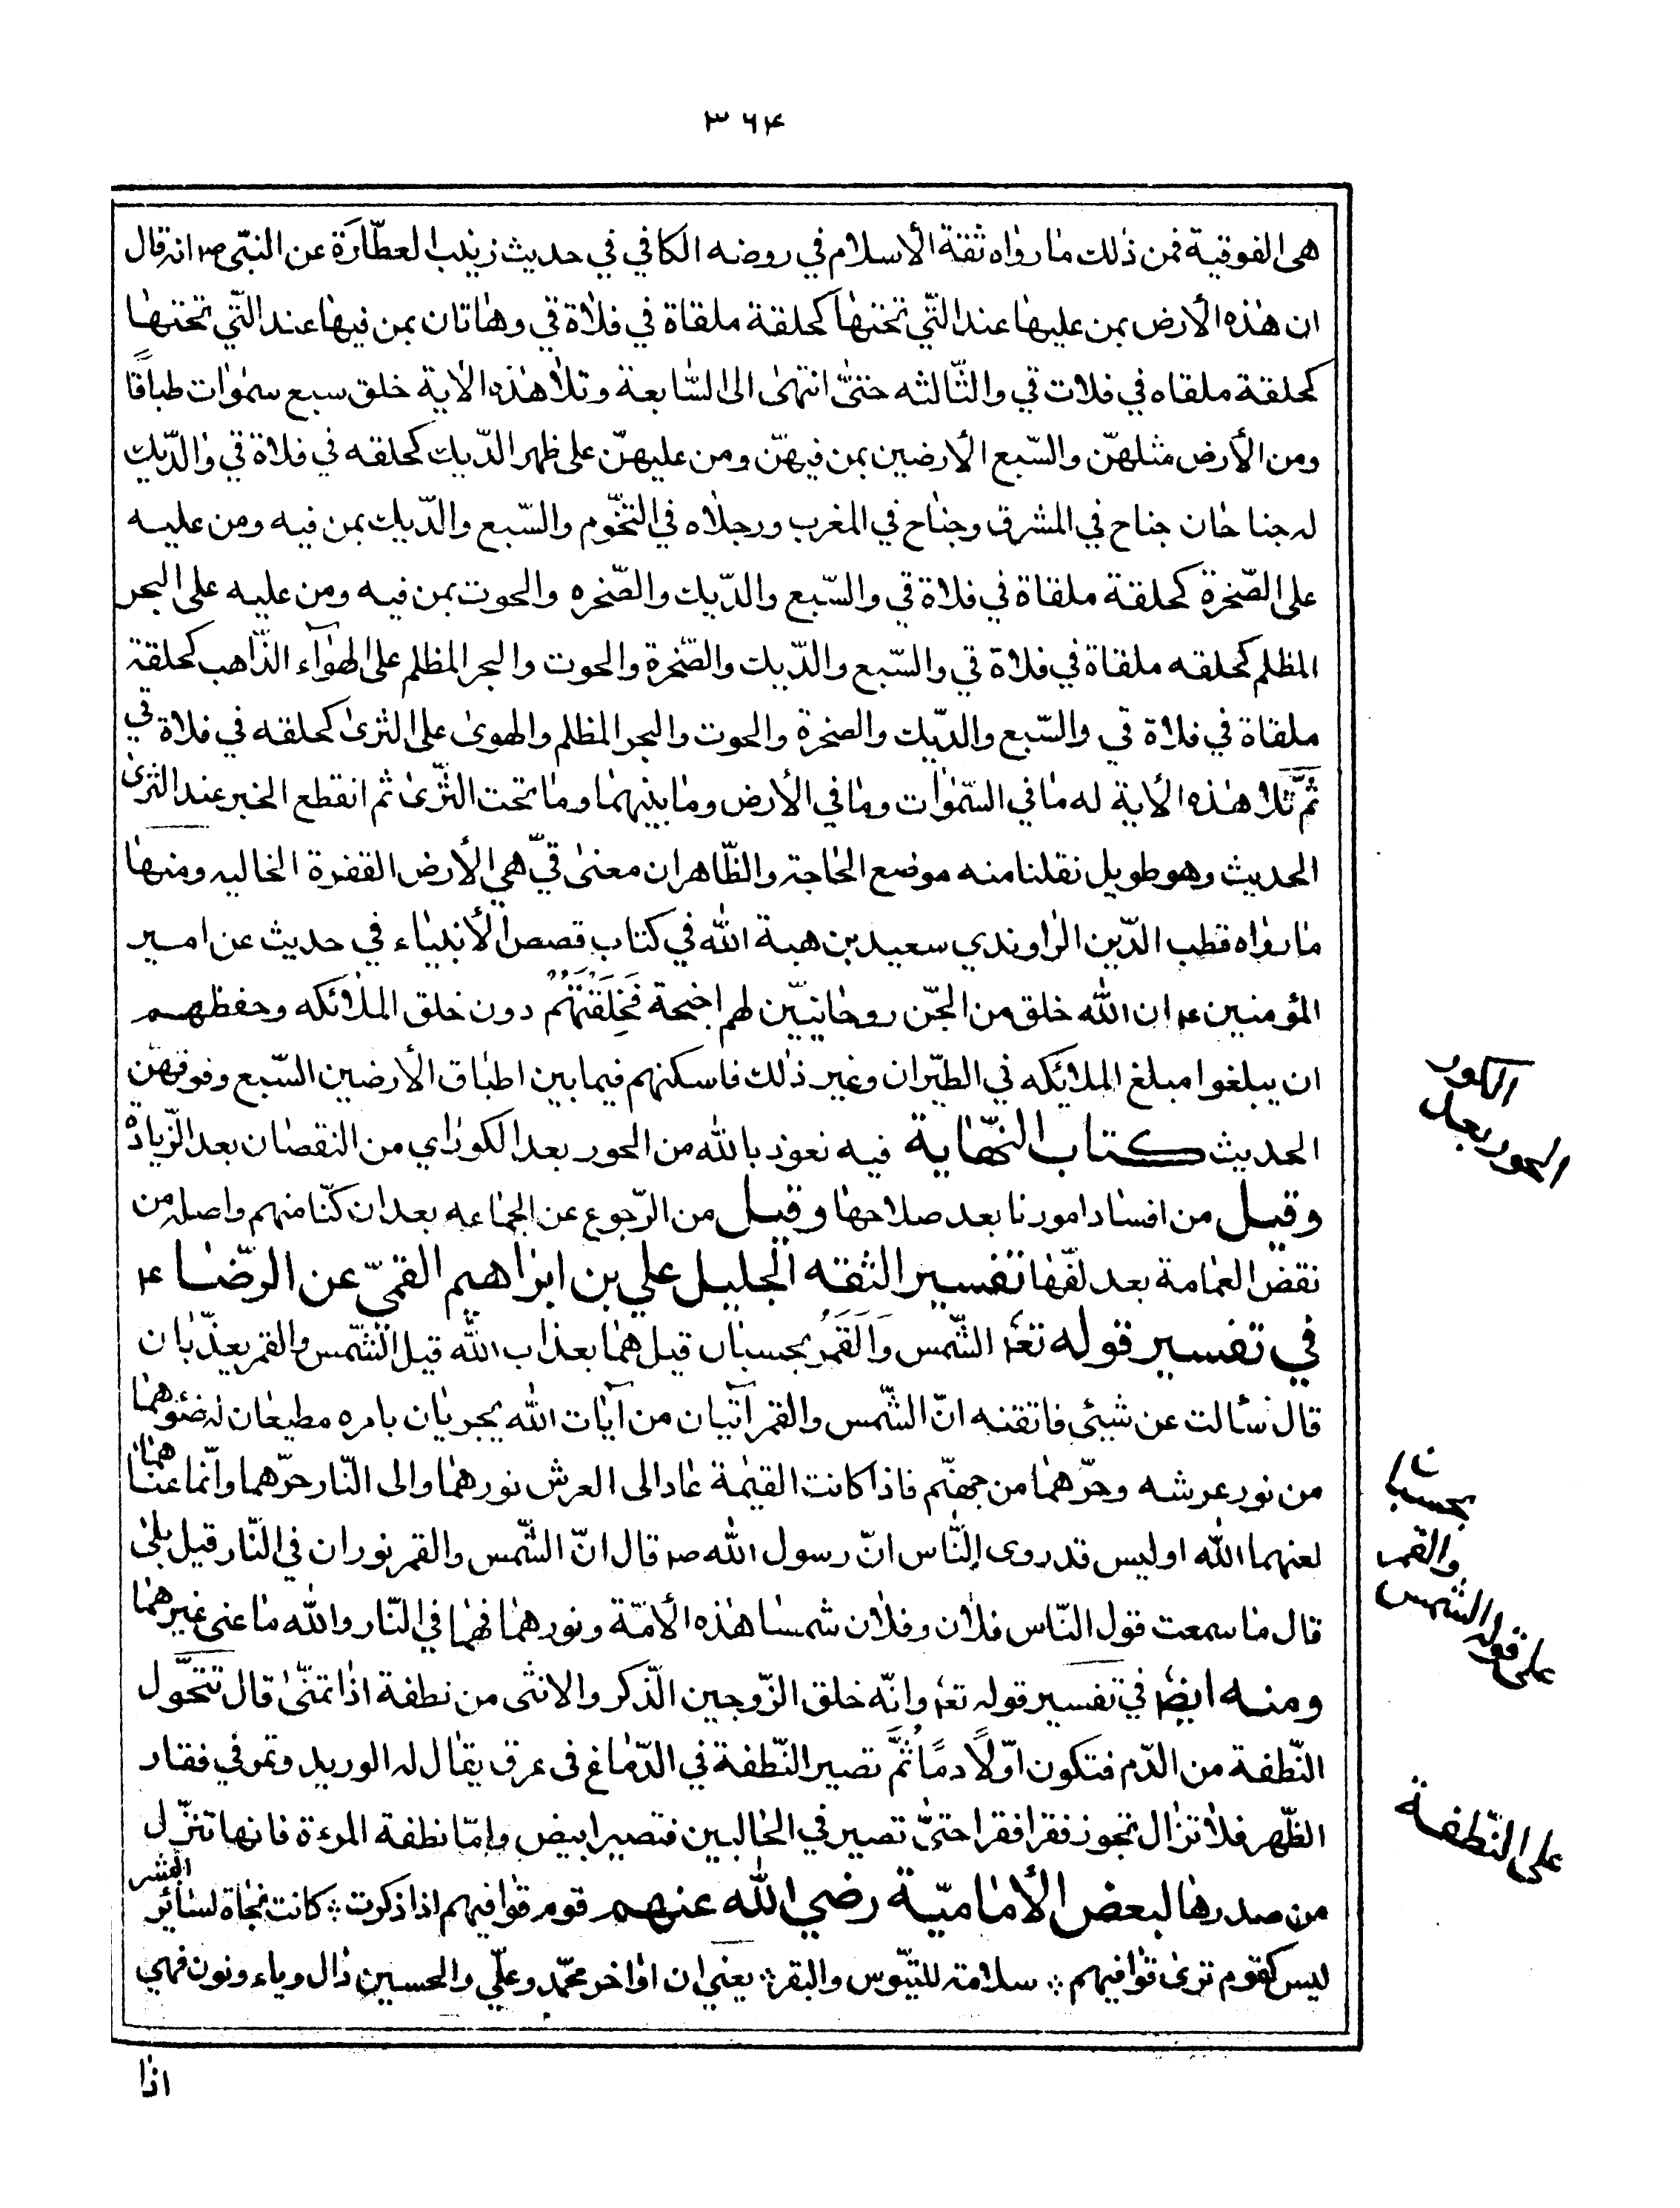 ٣٦۴
هى الفوقية فمن ذلك ما رواه ثقة الاسلام في روضه الكافي في حديث زينب العطارة عن النبّى ص انه قال
ان هذه الأرض بمن عليها عند التّي تحتها كحلقة ملقاة في فلاة قي وهاتان بمن فيها عند التّي تحتها
كحلقة ملقاه في فلات قي والثّالثه حتىّ انتهى الى السّابعة وتلا هذه الاية خلق سبع سموات طباقًا
ومن الأرض مثلهنّ والسّبع الارضين بمن فيهنّ ومن عليهنّ على ظهر الدّيك كحلقه في فلاة قي والدّيك
له جناحان جناح في المشرق وجناح في المغرب ورجلاه في التخّوم والسّبع والدّيك بمن فيه ومن عليه
على الصّخرة كحلقة ملقاة في فلاة قي والسّبع والدّيك والصّخره والحوت بمن فيه ومن عليه على البحر
المظلم كحلقه ملقاة في فلاة قي والسّبع والدّيك والصّخرة والحوت والبحر المظلم على الهوآء الذّاهب كحلقة
ملقاة في فلاة قي والسّبع والدّيك والصخرة والحوت والبحر المظلم والهوى على الثرى كحلقه في فلاة قي
ثمّ تلا هذه الأية له ما في السّموات وما في الأرض وما بينهما وما تحت الثّرى ثم انقطع الخبر عند الثرى
الحديث وهو طويل نقلنا منه موضع الحاجة والظّاهر ان معنى قيّ هي الأرض القفرة الخاليه ومنها
ما رواه قطب الدّين الراوندي سعيد بن هبة الله في كتاب قصص الأنبياء في حديث عن امير
المؤمنين ع ان الله خلق من الجنّ روحانيّين لهم اجنحة فخلقتهم دون خلق الملائكه وحفظهم
ان يبلغوا مبلغ الملائكه في الطّيران وغير ذلك فاسكنهم فيما بين اطباق الأرضين السّبع وفوقهن
الحديث كتاب النّهاية فيه نعوذ بالله من الحور بعد الكور اي من النقصان بعد الزّيادة
وقيل من افساد امورنا بعد صلاحها وقيل من الرّجوع عن الجماعه بعد ان كنّا منهم واصله من
نقض العمامة بعد لفّها تفسير الثقه الجليل علي بن ابراهيم القميّ عن الرضّا ع
في تفسير قوله تع الشّمس وَالقَمَرُ بحسبان قيل هما بعذاب الله قيل الشّمس والقمر يعذّبان
قال سألت عن شيئ فاتقنه انّ الشّمس والقمر آتيان من آيات الله يجريان بامره مطيعان له ضوءهما
من نور عرشه وحرّهما من جهنّم فاذا كانت القيمة عاد الى العرش نورهما والى النّار حرّهما وانّما عناهما
لعنهما الله اوليس قد روى النّاس انّ رسول الله ص قال انّ الشّمس والقمر نوران في النّار قيل بلى
قال ما سمعت قول النّاس فلان وفلان شمسا هذه الأمّة ونورهما فهما في النّار والله ما عنى غيرهما
ومنه ايض في تفسير قوله تع وانّه خلق الزّوجين الذّكر والانثى من نطفة اذا تمنّى قال تتحّول
النّطفة من الدّم فتكون اوّلًا دمًا ثُمَّ تصير النّطفة في الدّماغ فى عرق يقال له الوريد وتمر في فقار
الظّهر فلا تزال تجوز فقرا فقرا حتىّ تصير في الحالبين فتصير ابيض وامّا نطفة المرءة فانها تنزّل
من صدرها لبعض الأماميّة رضي الله عنهم قوم قوافيهم اذا ذكرت ؛ كانت نجاة لسائر البشر
ليس كقوم ترى قوافيهم ؛ سلامة للتيّوس والبقر ؛ يعني ان اواخر محمّد وعلّي والحسين دال وياء ونون فهي
اذا
الحور بعد
الكور
على قوله الشمس
والقمر
بحسبان
على النّطفة